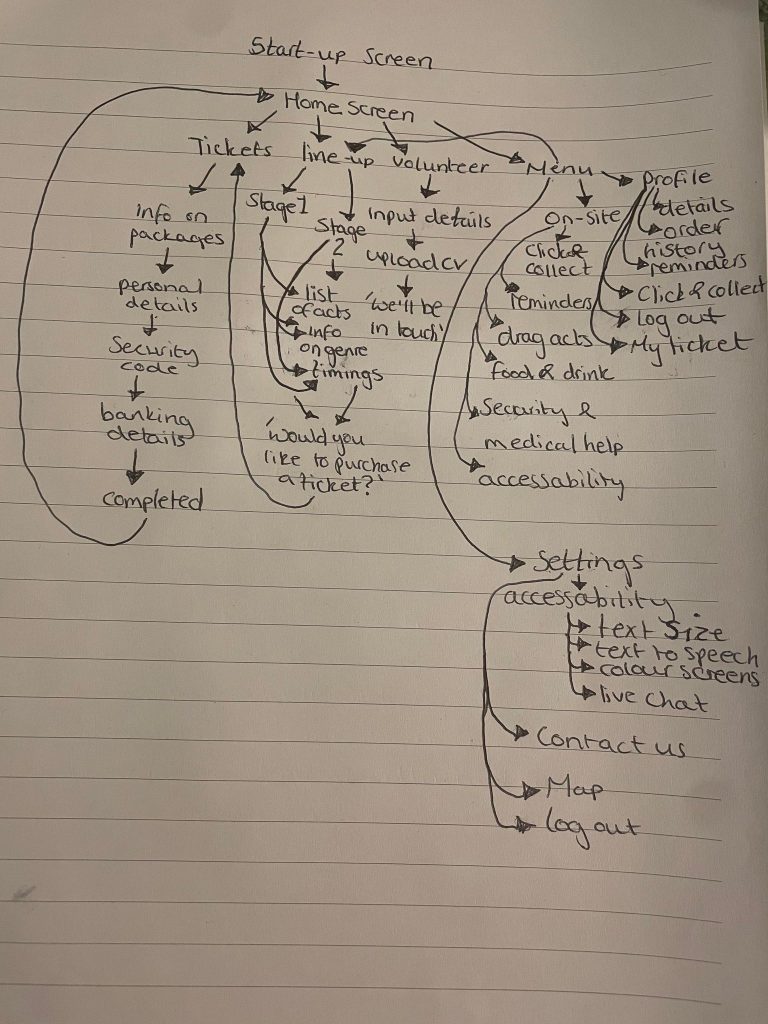 Start-up screen
Home screen
Tickets
line-up
volunteer
Menu
Profile
info on
packages
personal
details
Security
code
banking
details
completed
Stage 1
Stage
2
list
of acts
info
on genre
timings
'would you
like to purchase
a ticket?'
input details
upload cv
'we'll be
in touch'
On-site
Click &
collect
reminders
drag acts
food & drink
Security &
medical help
accessability
details
order
history
reminders
Click & collect
Log out
My ticket
Settings
accessability
text size
text to speech
colour screens
live chat
Contact us
Map
log out